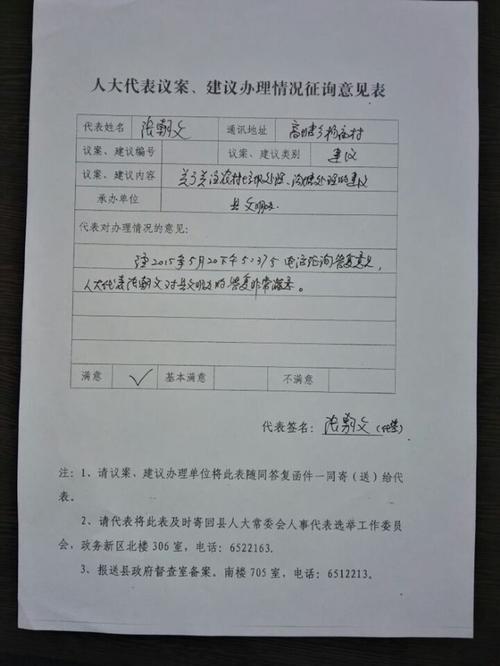 人大代表议案、建议办理情况征询意见表
代表姓名 张朝文 通讯地址
议案、建议编号 议案、建议类别 建议
议案、建议内容 关于关注农村垃圾处理、沟塘处理的建议
承办单位 县文明办
代表对办理情况的意见:
2015年5月20下午5:37 电话征询答复意见,
人大代表张朝文对县文明办的答复非常满意。
满意 ✓ 基本满意 不满意
代表签名: 张朝文(代签)
注: 1、请议案、建议办理单位将此表随同答复函件一同寄(送)给代
表。
2、请代表将此表及时寄回县人大常委会人事代表选举工作委员
会,政务新区北楼 306 室,电话: 6522163.
3、报送县政府督查室备案。南楼 705 室,电话: 6512213。